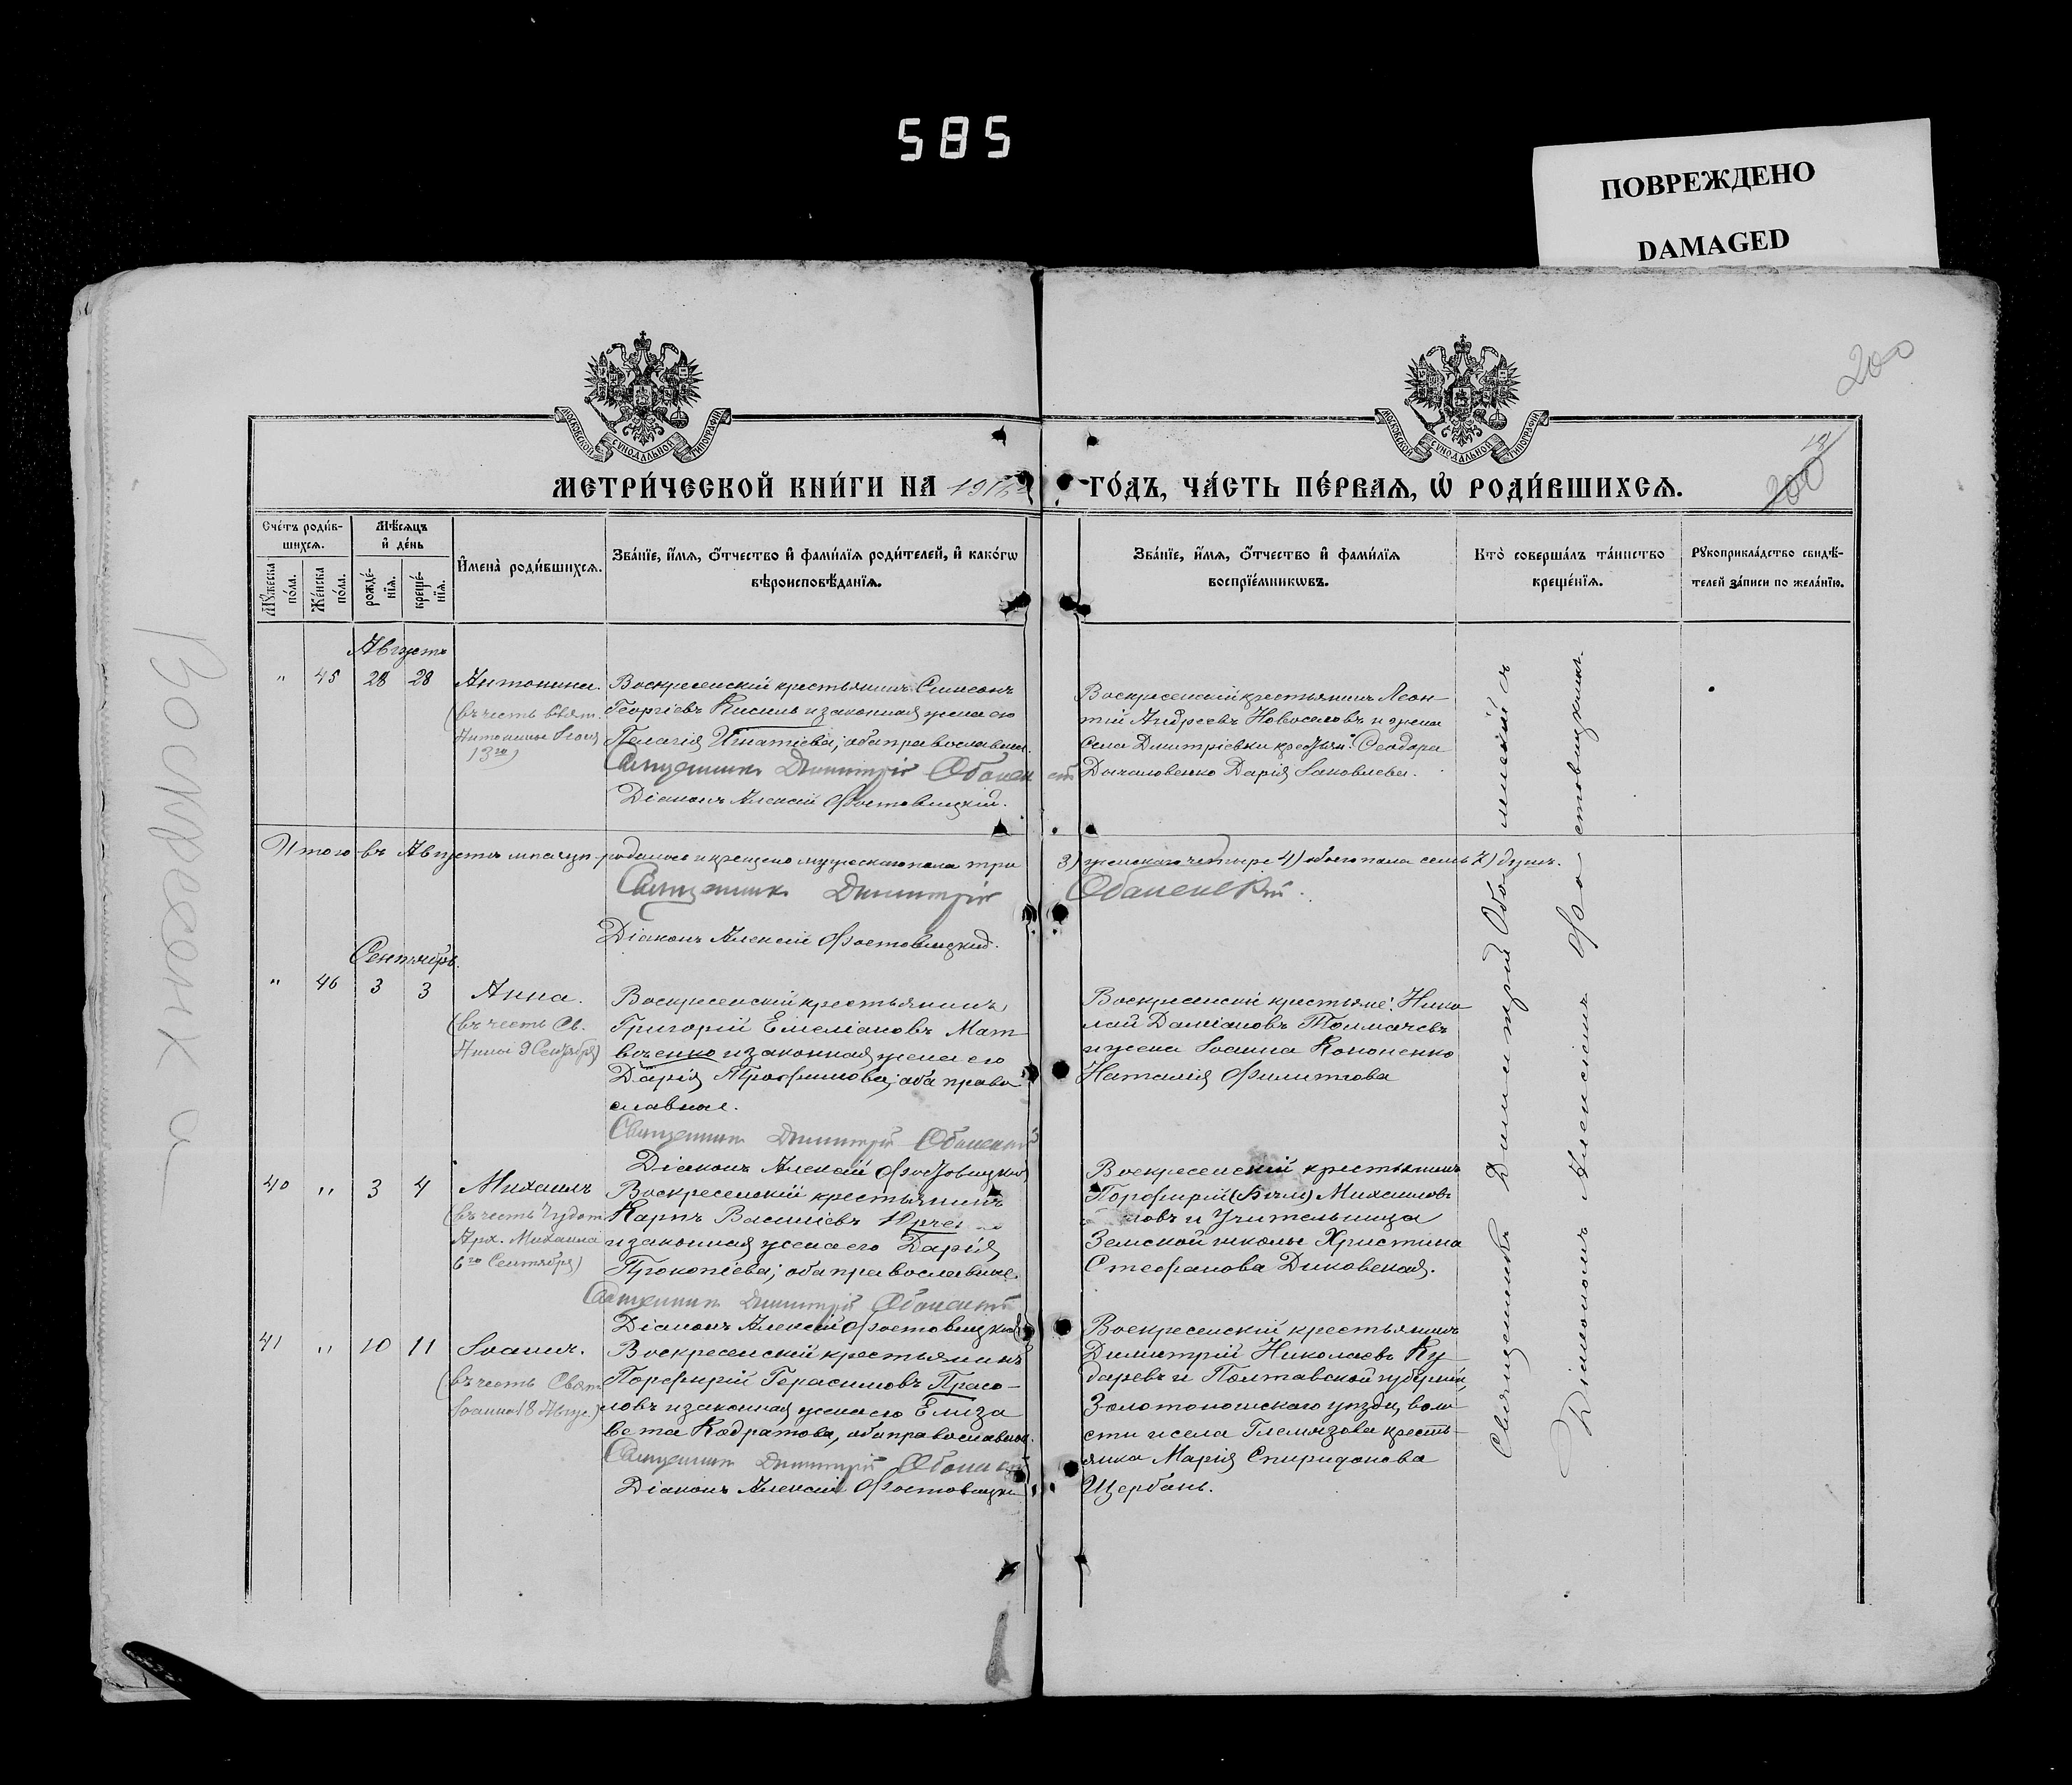 585
ПОВРЕЖДЕНО
DAMAGED
200
МОСКОВСКОЙ СѴНОДАЛЬНОЙ ТИПОГРАФІИ
МОСКОВСКОЙ СѴНОДАЛЬНОЙ ТИПОГРАФІИ
МЕТРИ́ЧЕСКОЙ КНИ́ГИ НА 1916
ГО́ДЪ, ЧА́СТЬ ПЕ́РВАѦ, Ѡ РОДИ́ВШИХСѦ.
200
Сче́тъ роди́в-
шихсѧ.
Мѣ́сѧцъ
и҆ де́нь
Мꙋ́жеска
по́ла.
Же́нска
по́ла.
рожде́-
нїѧ.
креще́-
нїѧ.
И҆мена̀ роди́вшихсѧ.
Зва́нїе, и҆́мѧ, ѻ҆́тчество и҆ фами́лїѧ роди́телей, и҆ како́гѡ
вѣроисповѣ́данїѧ.
Зва́нїе, и҆́мѧ, ѻ҆́тчество и҆ фами́лїѧ
воспрїе́мникѡвъ.
Кто̀ соверша́лъ та́инство
креще́нїѧ.
Рꙋкоприкла́дство свидѣ́-
телей за́писи по жела́нїю.
Августъ
" 45 28 28 Антонина.
(въ честь
13го)
Воскресенскій крестьянинъ Симеонъ
Георгіевъ Кисиль и законная жена его
Пелагія Игнатіева; оба православные.
Священникъ Димитрій Обаленскій
Діаконъ Алексій Фостовицкій.
Воскресенскій крестьянинъ Леон-
тій Андреевъ Новоселовъ и жена
села Дмитріевки крестьян. Ѳеодора
Дарія Іаковлева.
Итого въ Августѣ мѣсяцѣ родилось и крещено мужескаго пола три
3) женскаго четыре 4) обоего пола семь 7) душъ.
Священникъ Димитрій Обаленскій.
Діаконъ Алексій Фостовицкій.
Сентябрь.
" 46 3 3 Анна.
(въ честь Св.
Анны 9 Сентября)
Воскресенскій крестьянинъ
Григорій Емеліановъ Мат-
вѣенко и законная жена его
Дарія Трофимова; оба право
славные.
Священникъ Димитрій Обаленскій
Діаконъ Алексій Фостовицкій
Воскресенскіе крестьяне: Нико
лай Даміановъ Толмачевъ
и жена Іоанна Кононенко
Наталія Филиппова
40 " 3 4 Михаилъ
(въ честь Чудот.
Арх. Михаила
6го Сентября)
Воскресенскій крестьянинъ
Карпъ Василіевъ
и законная жена его Дарія
Прокопіева; оба православные.
Священникъ Димитрій Обаленскій
Діаконъ Алексій Фостовицкій
Воскресенскій крестьянинъ
Порфирій Михаиловъ
ловъ и Учительница
Земской школы Христина
Стефанова Диковская.
41 " 10 11 Іоаннъ.
(въ честь Свят.
Іоанна 18 Авгус.)
Воскресенскій крестьянинъ
Порфирій Герасимовъ Прасо-
ловъ и законная жена его Елиза
вета Кодратова, оба православные.
Священникъ Димитрій Обаленскій
Діаконъ Алексій Фостовицкій
Воскресенскій крестьянинъ
Димитрій Николаевъ Ку-
даревъ и Полтавской губерніи,
Золотоношскаго уѣзда, воло
сти и села Гельмязова кресть-
янка Марія Спиридонова
Щербань.
Священникъ Димитрій Обаленскій съ
Діакономъ Алексіемъ Фостовицкимъ.
Воскресенка